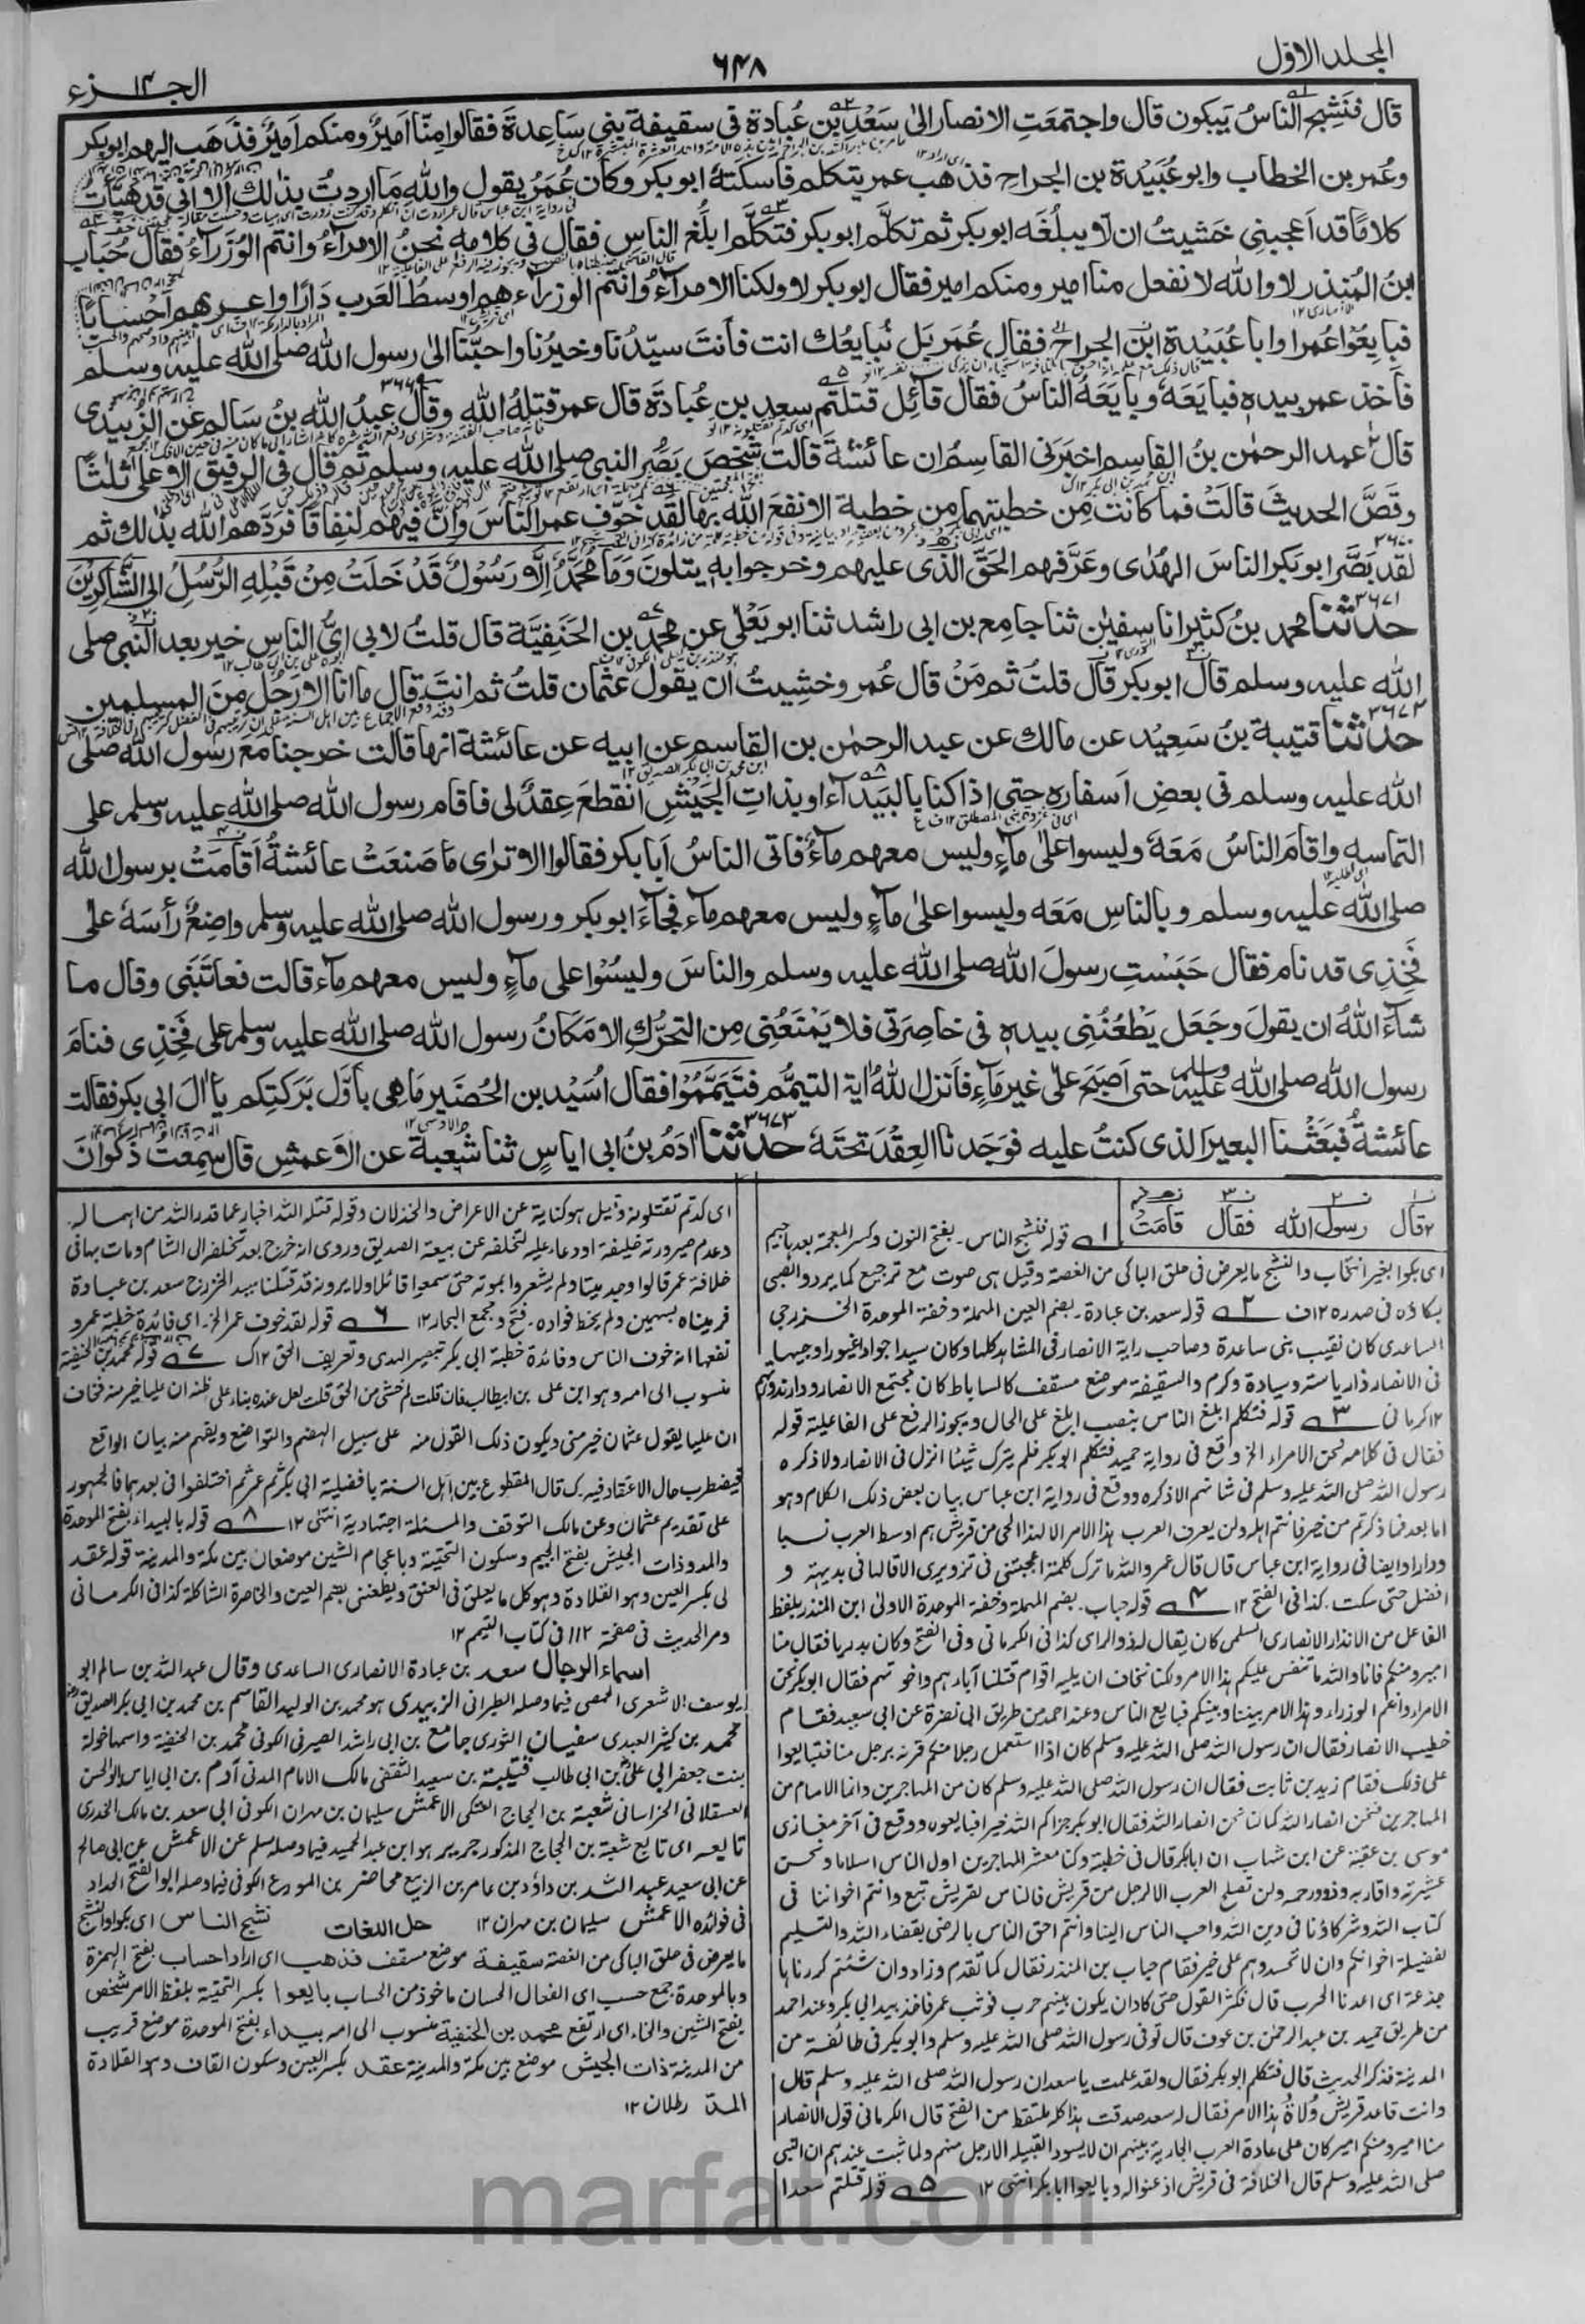 المجلد الاول
۶۴۸
الجزء ۱۴
قال فنَشِجَ الناسُ يَبكون قال واجتمعَتِ الانصار الىٰ سَعْدِ بن عُبادة فى سقيفة بنى سَاعِدةَ فقالوا مِنّا اَميرٌ ومنكم اَميرٌ فذَهَب اليهم ابوبكر
وعُمر بن الخطاب وابوعُبَيْدة بن الجراح فذهب عمر يتكلم فاسكتَهُ ابوبكر وكان عُمَرُ يقول والله مَا اردتُ بذٰلك الا انى قد هيَّأتُ
كلامًا قد اَعجبنِى خَشيتُ ان لا يبلُغَه ابوبكر ثم تكلّم ابوبكر فتكلَّم ابلَغَ الناس فقال فى كلامه نحنُ الامرآءُ وانتم الوُزَرآءُ فقال حُبَاب
ابنُ المُنذِر لا والله لا نفعل منا امير ومنكم امير فقال ابوبكر لا ولكنا الامرآءُ وانتم الوزرآءُ هم اوسطُ العَرب دَارًا واعربهم اَحْسابًا
فبايِعُوا عُمر او ابا عُبَيْدة ابنَ الجراح فقال عُمَر بَل نُبايعُك انت فاَنتَ سيّدُنا وخيرُنا واحبّنا الىٰ رسول الله صلى الله عليه وسلم
فاَخذ عمر بيده فبايَعَهٗ وبايَعَهُ الناسُ فقال قآئِل قتلتم سعد بن عُبادَة قال عمر قتلهُ الله وقال عبدُ الله بنُ سَالم عن الزُبيدى
قال عبد الرحمٰن بنُ القاسم اخبَرَنى القاسِمُ ان عائشةَ قالت شَخَصَ بَصَرُ النبى صلى الله عليه وسلم ثم قال فى الرفيق الاعلىٰ ثلٰثًا
وقَصَّ الحديثَ قالَتْ فما كانت مِن خطبتهما من خطبة الا نفعَ الله بها لقد خَوّف عمر الناسَ وانَّ فيهم لنِفاقًا فردَّهم الله بذٰلك ثم
لقد بَصَّر ابوبَكر الناسَ الهُدٰى وعَرَّفهم الحَقّ الذى عليهم وخرجوا به يتلونَ وَمَا مُحَمَّدٌ اِلَّا رَسُوْلٌ قَدْ خَلَتْ مِنْ قَبْلِهِ الرُّسُلُ الى الشَّاكِرِيْنَ
۳۶۷۱ حدثنا محمد بنُ كثير انا سفيٰن ثنا جامع بن ابى راشد ثنا ابو يَعْلىٰ عن محمد بن الحَنَفِيَّة قال قلتُ لابى اىُّ الناس خير بعد النبى صلى
الله عليه وسلم قال ابوبكر قال قلتُ ثم مَنْ قال عُمر وخشِيتُ ان يقول عثمان قلتُ ثم انتَ قال ما انا الا رَجُلٌ مِنَ المسلمين
حدثنا قتيبة بنُ سَعِيْد عن مالك عن عبد الرحمٰن بن القاسم عن ابيه عن عائشة انها قالت خرجنا مع رسول الله صلى
الله عليه وسلم فى بعض اَسفاره حتى اذا كنا بالبَيْدآء او بذاتِ الجَيْشِ انقطعَ عِقدٌ لى فاقام رسول الله صلى الله عليه وسلم على
التماسه واقامَ الناسُ مَعَهٗ وليسوا علىٰ مآءٍ وليس معهم مآءٌ فاتى الناسُ اَبا بكر فقالوا الا ترٰى مَا صَنعَتْ عائشةُ اَقامَتْ برسول الله
صلى الله عليه وسلم وبالناسِ مَعَه وليسوا علىٰ مآءٍ وليس معهم مآء فجآءَ ابوبكر ورسول الله صلى الله عليه وسلم واضِعٌ رأسَهٗ علىٰ
فَخِذِى قد نام فقال حَبَسْتِ رسولَ الله صلى الله عليه وسلم والناسَ وليسُوْا على مآءٍ وليس معهم مآء قالت فعاتَبَنى وقال ما
شآءَ اللهُ ان يقولَ وجَعَل يَطْعُنُنِى بيده فى خاصِرَتى فلا يَمْنَعُنِى مِن التحرُّك الا مَكانُ رسول الله صلى الله عليه وسلم على فَخِذِى فنامَ
رسول الله صلى الله عليه وسلم حتى اَصبَحَ علىٰ غير مَآءٍ فاَنزل اللهُ اٰية التيمُّم فتَيَمَّمُوْا فقال اُسَيْد بن الحُضَير مَا هى باَوَّل بَرَكتِكم يا اٰلَ ابى بكر فقالت
عائشةُ فبَعَثْنا البعيرَ الذى كنتُ عليه فوَجَدنا العِقْدَ تحتَهٗ ۳۶۷۳ حدثنا اٰدَمُ بنُ ابى اياسٍ ثنا شُعبة عن الاعمشِ قال سمِعت ذكوانَ
قال رسول الله فقال قامَتْ
۱ قوله فنشج الناس۔ بفتح النون وكسر المعجمة بعدها جيم
اى بكوا بغير انتحاب والنشج ما يعرض فى حلق الباكى من الغصة وقيل هى صوت مع ترجيع كما يردد الصبى
بكاؤه فى صدره ۱۲ف ۲ قوله سعد بن عبادة۔ بضم العين المهملة وخفة الموحدة الخزرجى
الساعدى كان نقيب بنى ساعدة وصاحب راية الانصار فى المشاهد كلها وكان سيدا جوادا غيورا وجيها
فى الانصار ذا رياسة وسيادة وكرم والسقيفة موضع مسقف كالساباط كان مجتمع الانصار ودار ندوتهم
۱۲كرمانى ۳ قوله فتكلم ابلغ الناس بنصب ابلغ على الحال ويجوز الرفع على الفاعلية قوله
فقال فى كلامه نحن الامراء الخ واقع فى رواية حميد فتكلم ابوبكر فلم يترك شيئا انزل فى الانصار ولا ذكره
رسول الله صلى الله عليه وسلم فى شانهم الا ذكره ووقع فى رواية ابن عباس بيان بعض ذلك الكلام وهو
اما بعد فما ذكرتم من خير فانتم اهله ولن يعرف العرب هذا الامر الا لهذا الحى من قريش هم اوسط العرب نسبا
ودارا وايضا فى رواية ابن عباس قال قال عمر والله ما ترك كلمة اعجبتنى فى تزويرى الا قالها فى بديهته و
افضل حتى سكت۔ كذا فى الفتح ۱۲ ۴ قوله حباب۔ بضم المهملة وخفة الموحدة الاولى ابن المنذر بلفظ
الفاعل من الانذار الانصارى السلمى كان يقال له ذو الراى كذا فى الكرمانى وفى الفتح وكان بدريا فقال منا
امير ومنكم فانا والله ما ننفس عليكم هذا الامر ولكنا نخاف ان يليه اقوام قتلنا آباءهم واخوتهم فقال ابوبكر نحن
الامراء وانتم الوزراء وهذا الامر بيننا وبينكم فبايع الناس وعند احمد من طريق ابى نضرة عن ابى سعيد فقام
خطيب الانصار فقال ان رسول الله صلى الله عليه وسلم كان اذا استعمل رجلا منكم قرنه برجل منا فتبايعوا
على ذلك فقام زيد بن ثابت فقال ان رسول الله صلى الله عليه وسلم كان من المهاجرين وانما الامام من
المهاجرين فنحن انصار الله كما كنا نحن انصار الله فقال ابوبكر جزاكم الله خيرا فبايعوه ووقع فى آخر مغازى
موسى بن عقبة عن ابن شهاب ان ابابكر قال فى خطبته وكنا معشر المهاجرين اول الناس اسلاما ونحن
عشيرته واقاربه وذوو رحمه ولن تصلح العرب الا لرجل من قريش فالناس لقريش تبع وانتم اخواننا فى
كتاب الله وشركاؤنا فى دين الله واحب الناس الينا وانتم احق الناس بالرضى بقضاء الله والتسليم
لفضيلة اخوانكم وان لا تحسدوهم على خير فقام حباب بن المنذر فقال كما تقدم وزاد وان شئتم كررناها
جذعة اى اعدنا الحرب قال فكثر القول حتى كاد ان يكون بينهم حرب فوثب عمر فاخذ بيد ابى بكر وعند احمد
من طريق حميد بن عبد الرحمٰن بن عوف قال توفى رسول الله صلى الله عليه وسلم وابوبكر فى طائفة من
المدينة فذكر الحديث قال فتكلم ابوبكر فقال ولقد علمت يا سعد ان رسول الله صلى الله عليه وسلم قال
وانت قاعد قريش ولاة هذا الامر فقال له سعد صدقت هذا كله ملتقط من الفتح قال الكرمانى قول الانصار
منا امير ومنكم امير كان على عادة العرب الجارية بينهم ان لا يسود القبيلة الا رجل منهم ولما ثبت عندهم ان النبى
صلى الله عليه وسلم قال الخلافة فى قريش اذعنوا له وبايعوا ابابكر انتهى ۱۲ ۵ قوله قتلتم سعدا
اى كدتم تقتلونه وقيل هو كناية عن الاعراض والخذلان وقوله قتله الله اخبار عما قدر الله من اهماله
وعدم صيرورته خليفة او دعاء عليه لتخلفه عن بيعة الصديق وروى انه خرج بعد تخلفه الى الشام ومات بها فى
خلافة عمر قالوا وجد ميتا ولم يشعروا بموته حتى سمعوا قائلا ولا يرونه قد قتلنا سيد الخزرج سعد بن عبادة
فرميناه بسهمين ولم يخط فواده۔ فتح ومجمع البحار ۱۲ ۶ قوله لقد خوف عمر الخ۔ اى فائدة خطبة عمر و
نفعها انه خوف الناس وفائدة خطبة ابى بكر تبصير الهدى وتعريف الحق ۱۲ك ۷ قوله محمد بن الحنفية
منسوب الى امه وهو ابن على بن ابيطالب فان قلت لم خشى من الحق قلت لعل عنده بناء على ظنه ان عليا خير منه فخاف
ان عليا يقول عثمان خير منى ويكون ذلك القول منه على سبيل الهضم والتواضع ويفهم منه بيان الواقع
فيضطرب حال الاعتقاد فيه۔ ك قال المقطوع بين اهل السنة بافضلية ابى بكر ثم عمر ثم اختلفوا فى بعدهما فالجمهور
على تقديم عثمان وعن مالك التوقف والمسئلة اجتهادية انتهى ۱۲ ۸ قوله بالبيداء بفتح الموحدة
والمد وذات الجيش بفتح الجيم وسكون التحتية وباعجام الشين موضعان بين مكة والمدينة قوله عقد
لى بكسر العين وهو القلادة وهو كل ما يعلق فى العنق ويطعننى بضم العين والخاصرة الشاكلة كذا فى الكرمانى
ومر الحديث فى صفحة ۱۱۲ فى كتاب التيمم ۱۲
اسماء الرجال سعد بن عبادة الانصارى الساعدى وقال عبد الله بن سالم ابو
يوسف الاشعرى الحمصى فيما وصله الطبرانى الزبيدى هو محمد بن الوليد القاسم بن محمد بن ابى بكر الصديق
محمد بن كثير العبدى سفيان الثورى جامع بن ابى راشد الصيرفى الكوفى محمد بن الحنفية واسمها خولة
بنت جعفر ابى على بن ابى طالب قتيبة بن سعيد الثقفى مالك الامام المدنى آدم بن ابى اياس ابو الحسن
العسقلانى الخراسانى شعبة بن الحجاج العتكى الاعمش سليمان بن مهران الكوفى ابى سعد بن مالك الخدرى
تابعه اى تابع شعبة بن الحجاج المذكور جرير هو ابن عبد الحميد فيما وصله مسلم عن الاعمش عن ابى صالح
عن ابى سعيد عبد الله بن داؤد بن عامر بن الربيع محاضر بن المورع الكوفى فيما وصله ابو الفتح الحداد
فى فوائده الاعمش سليمان بن مهران ۱۲ حل اللغات نشج الناس اى بكوا والنشج
ما يعرض فى حلق الباكى من الغصة سقيفة موضع مسقف فذهب اى اراد احساب بفتح الهمزة
وبالموحدة جمع حسب اى الفعال الحسان ماخوذ من الحساب بايعوا بكسر التحتية بلفظ الامر شخص
بفتح الشين والخاء اى ارتفع محمد بن الحنفية منسوب الى امه بيداء بفتح الموحدة موضع قريب
من المدينة ذات الجيش موضع بين مكة والمدينة عقد بكسر العين وسكون القاف وهو القلادة
المد رطلان ۱۲
marfat.com